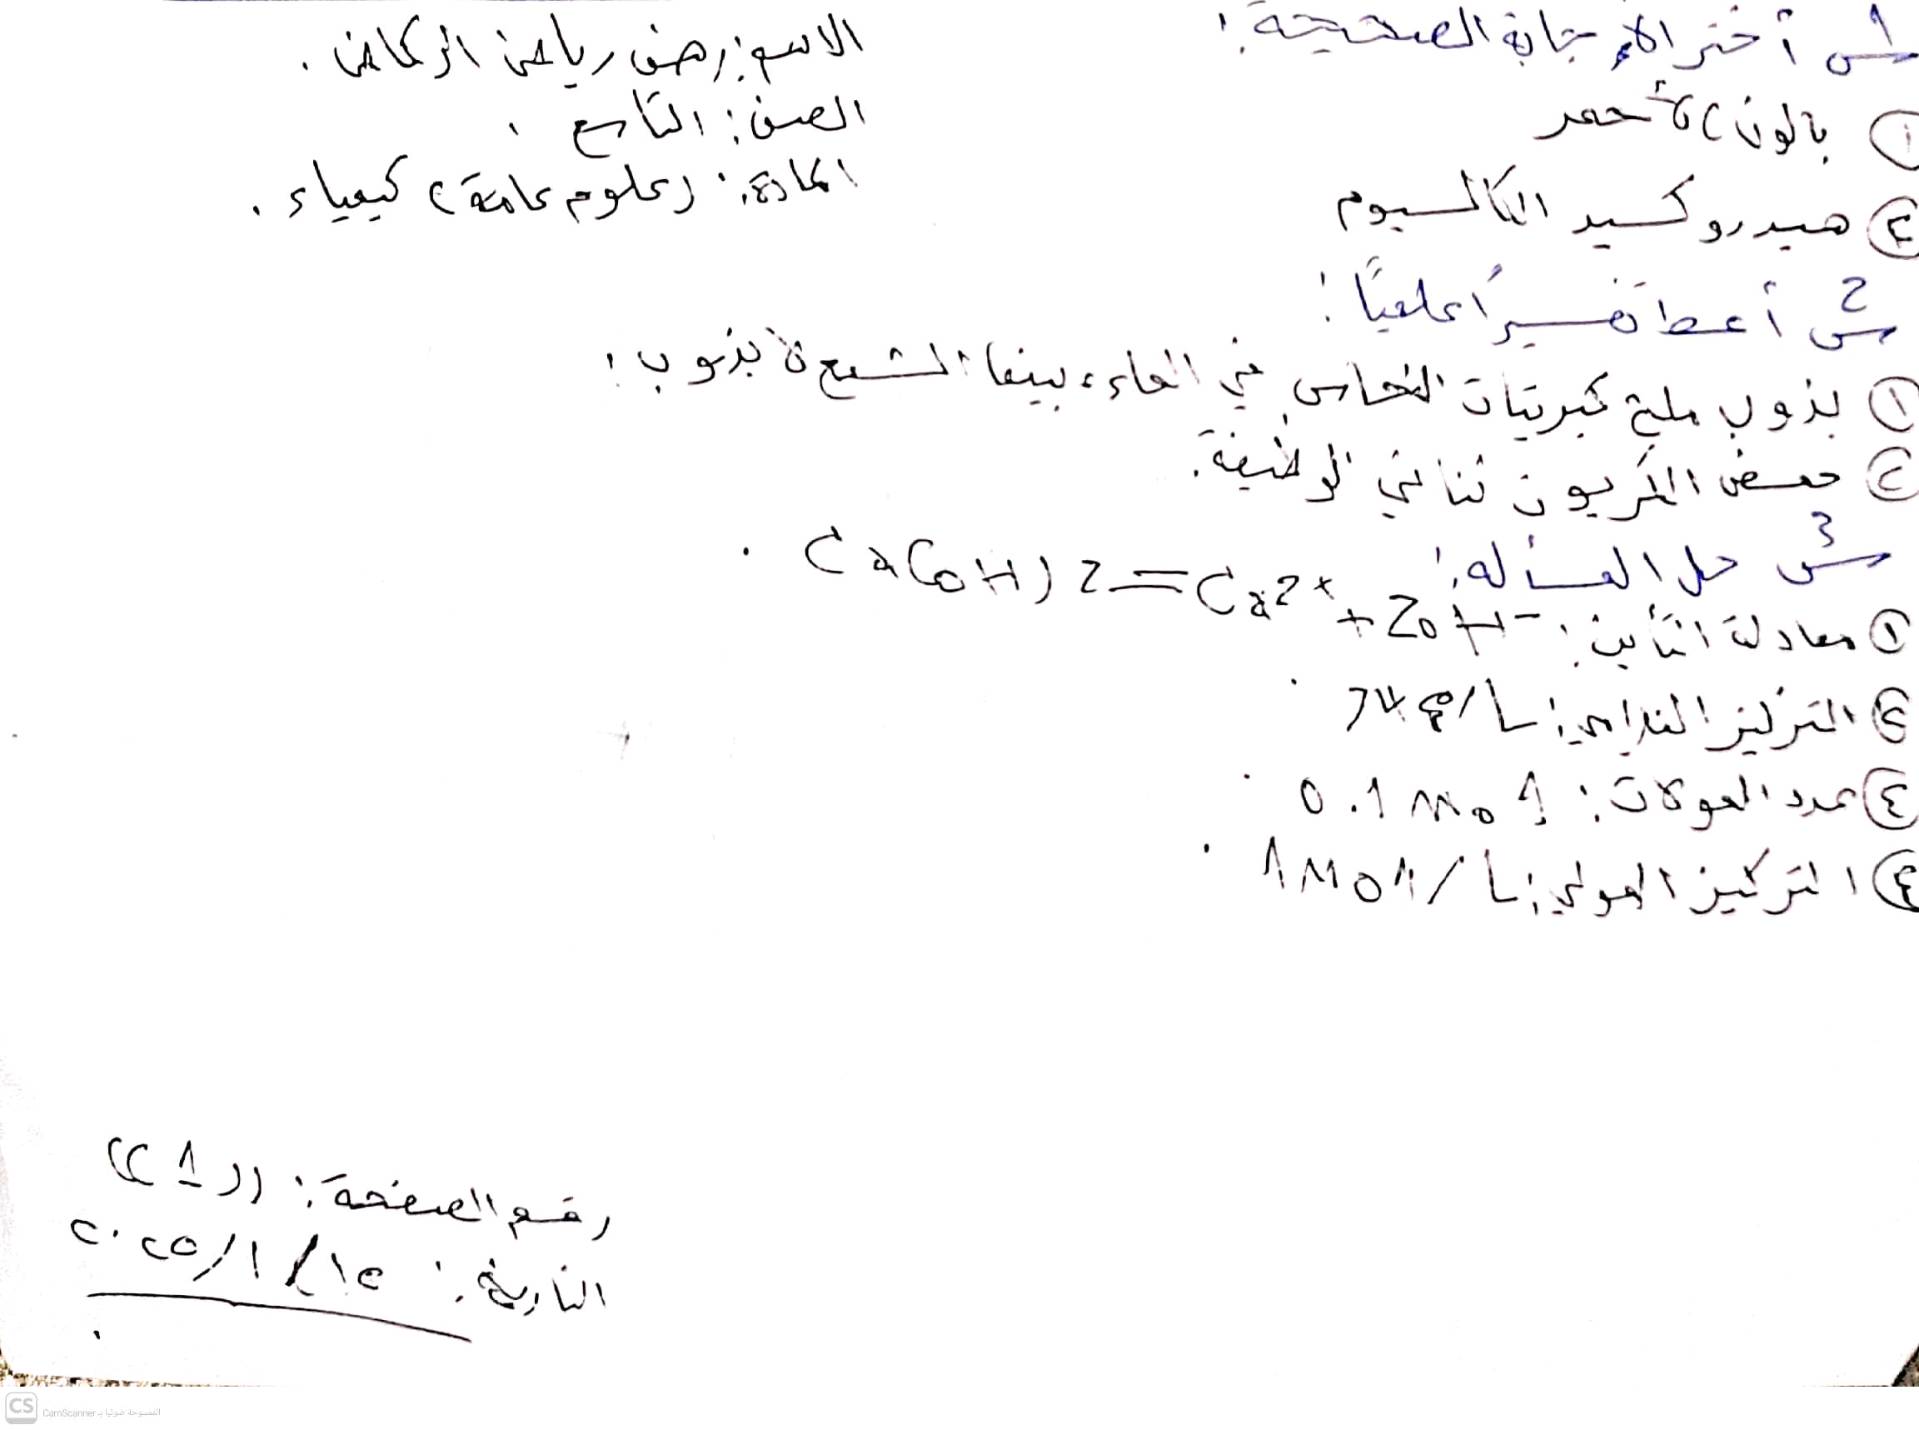 س1 أختر الإجابة الصحيحة:
الاسم: رهف رياض الركاض.
① بالون) الأحمر
الصف: التاسع.
المادة: (علوم عامة) كيمياء.
② هيدروكسيد الكالسيوم
س2 أعط تفسيراً علمياً:
① يذوب ملح كبريتات النحاس في الماء، بينما الشمع لا يذوب:
② حمض الكربون ثنائي الوظيفة.
س3 حل المسأله:
① معادلة التأين: Ca(OH)2=Ca2+ + 2OH- .
② التركيز الغرامي: 74g/L .
عدد المولات: 0.1 mol .
④ التركيز المولي: 1mol/L .
رقم الصفحة: ((1))
التاريخ: ١٥/١/٢٠٢٥
CS CamScanner الممسوحة ضوئيا بـ